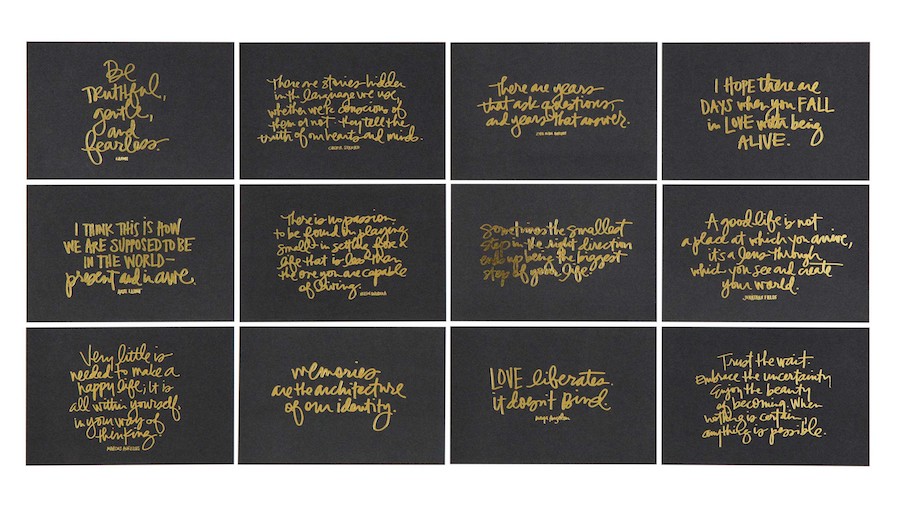 Be
TRUTHFUL,
gentle,
and
fearless.
There are stories hidden
in the language we use
whether we're conscious of
them or not. They tell the
truth of our hearts and minds.
There are years
that ask questions,
and years that answer.
I HOPE there are
DAYS when you FALL
in LOVE with being
ALIVE.
I THINK THIS IS HOW
WE ARE SUPPOSED TO BE
IN THE WORLD—
present and in awe.
ANNE LAMOTT
There is no passion
to be found in playing
small in settling for a
life that is less than
the one you are capable
of living.
NELSON MANDELA
Sometimes the smallest
step in the right direction
ends up being the biggest
step of your life.
A good life is not
a place at which you arrive,
it's a lens through
which you see and create
your world.
JONATHAN FIELDS
Very little is
needed to make a
happy life; It is
all within yourself,
in your way of
thinking.
MARCUS AURELIUS
memories
are the architecture
of our identity.
LOVE liberates.
it doesn't Bind.
maya Angelou
Trust the wait.
Embrace the uncertainty
Enjoy the beauty
of becoming. When
nothing is certain,
anything is possible.